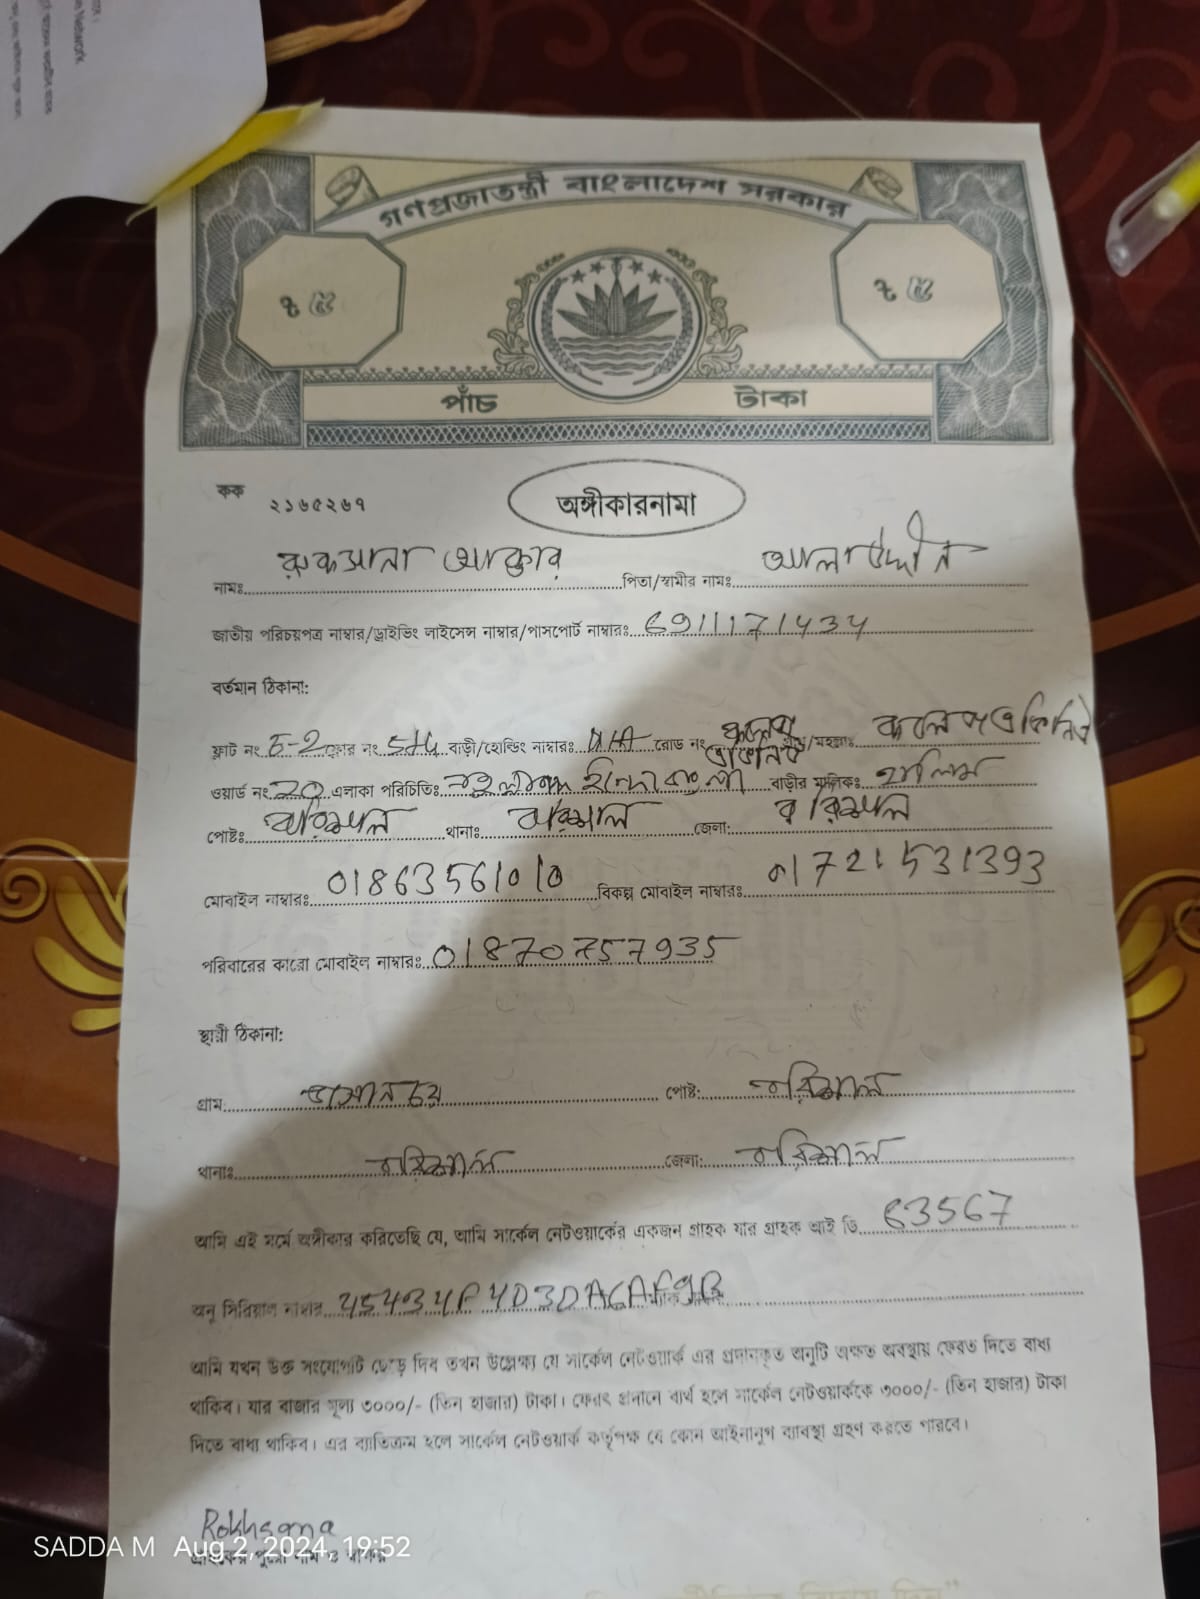 Network.
গণপ্রজাতন্ত্রী বাংলাদেশ সরকার
৳ ৫ ৳ ৫
পাঁচ টাকা
কক ২১৬৫২৬৭
অঙ্গীকারনামা
নামঃ রুকসানা আক্তার পিতা/স্বামীর নাম: আলাউদ্দীন
জাতীয় পরিচয়পত্র নাম্বার/ড্রাইভিং লাইসেন্স নাম্বার/পাসপোর্ট নাম্বারঃ 6911171434
বর্তমান ঠিকানা:
ফ্লাট নং E-2 ফ্লোর নং 5th বাড়ী/হোল্ডিং নাম্বারঃ N/A রোড নং /মহল্লাঃ
ওয়ার্ড নং 20 এলাকা পরিচিতিঃ বাড়ীর মালিকঃ হালিম
পোষ্টঃ বরিশাল থানাঃ বরিশাল জেলা: বরিশাল
মোবাইল নাম্বারঃ 01863561010 বিকল্প মোবাইল নাম্বারঃ 01721531393
পরিবারের কারো মোবাইল নাম্বারঃ 01870757935
স্থায়ী ঠিকানা:
গ্রাম: পোষ্ট: বরিশাল
থানাঃ বরিশাল জেলা: বরিশাল
আমি এই মর্মে অঙ্গীকার করিতেছি যে, আমি সার্কেল নেটওয়ার্কের একজন গ্রাহক যার গ্রাহক আই ডি 63567
অনু সিরিয়াল নাম্বার
আমি যখন উক্ত সংযোগটি ছেড়ে দিব তখন উল্লেখ্য যে সার্কেল নেটওয়ার্ক এর প্রদানকৃত অনুটি অক্ষত অবস্থায় ফেরত দিতে বাধ্য
থাকিব। যার বাজার মূল্য ৩০০০/- (তিন হাজার) টাকা। ফেরৎ প্রদানে ব্যর্থ হলে সার্কেল নেটওয়ার্ককে ৩০০০/- (তিন হাজার) টাকা
দিতে বাধ্য থাকিব। এর ব্যতিক্রম হলে সার্কেল নেটওয়ার্ক কর্তৃপক্ষ যে কোন আইনানুগ ব্যবস্থা গ্রহণ করতে পারবে।
Rokhsana
SADDA M Aug 2, 2024, 19:52
গ্রাহকের পুরো নাম ও স্বাক্ষর